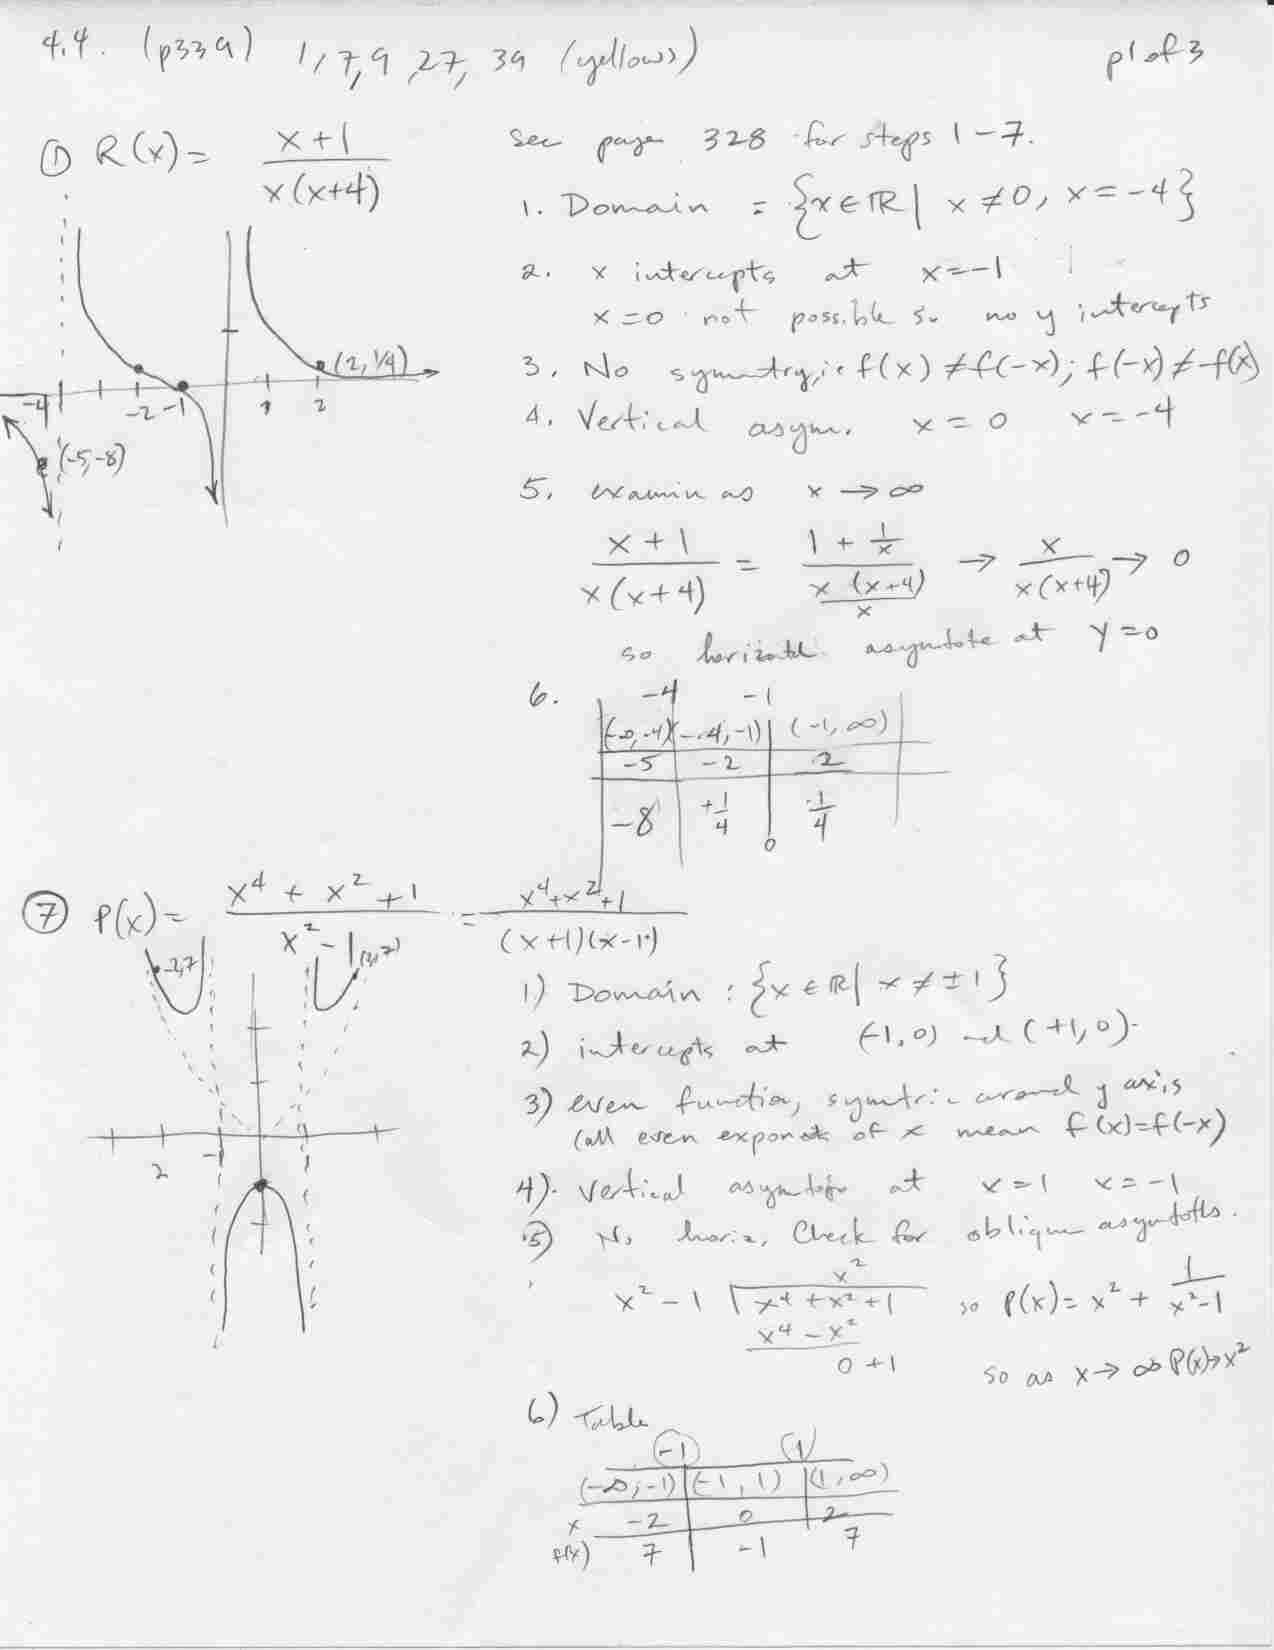 4.4. (p339) 1, 7, 9, 27, 39 (yellows) p1 of 3
① R(x) = x+1 / x(x+4)
See page 328 for steps 1-7.
1. Domain = {x∈ℝ | x≠0, x=-4}
2. x intercepts at x=-1
x=0 not possible so no y intercepts
3. No symmtry, ie f(x)≠f(-x); f(-x)≠-f(x)
4. Vertical asym. x=0 x=-4
(2, 1/4)
-4 -2 -1 1 2
(-5,-8)
5. examin as x→∞
x+1 / x(x+4) = 1 + 1/x / x(x+4)/x → x / x(x+4) → 0
so horizontal asymtote at y=0
6. -4 -1
(-∞,-4) (-4,-1) (-1,∞)
-5 -2 2
-8 +1/4 1/4
0
⑦ P(x) = x⁴ + x² + 1 / x² - 1 = x⁴+x²+1 / (x+1)(x-1)
-2,7 (2,7)
2 -1 1
1) Domain : {x∈ℝ | x≠±1}
2) intercepts at (-1,0) and (+1,0).
3) even function, symtric around y axis
(all even exponets of x mean f(x)=f(-x)
4). Vertical asymtote at x=1 x=-1
5) No horiz. Check for oblique asymtotes.
x²
x²-1 √ x⁴+x²+1 so P(x) = x² + 1 / x²-1
x⁴-x²
0+1 so as x→∞ P(x)→x²
6) Table
-1 1
(-∞,-1) (-1, 1) (1,∞)
x -2 0 2
f(x) 7 -1 7